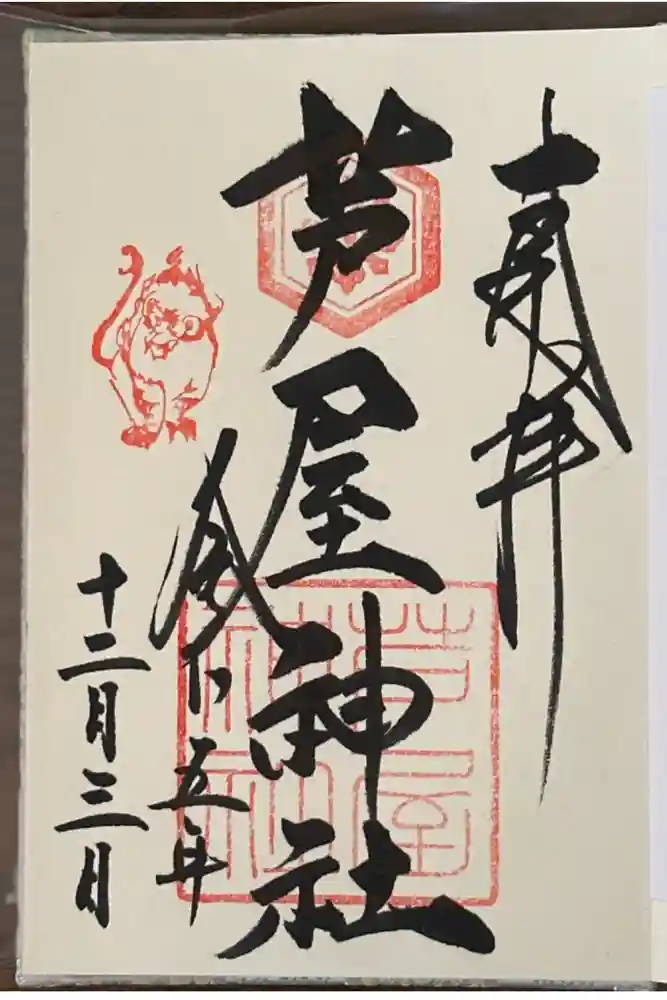 奉拝
芦屋神社
令和五年
十二月三日
芦屋
神社